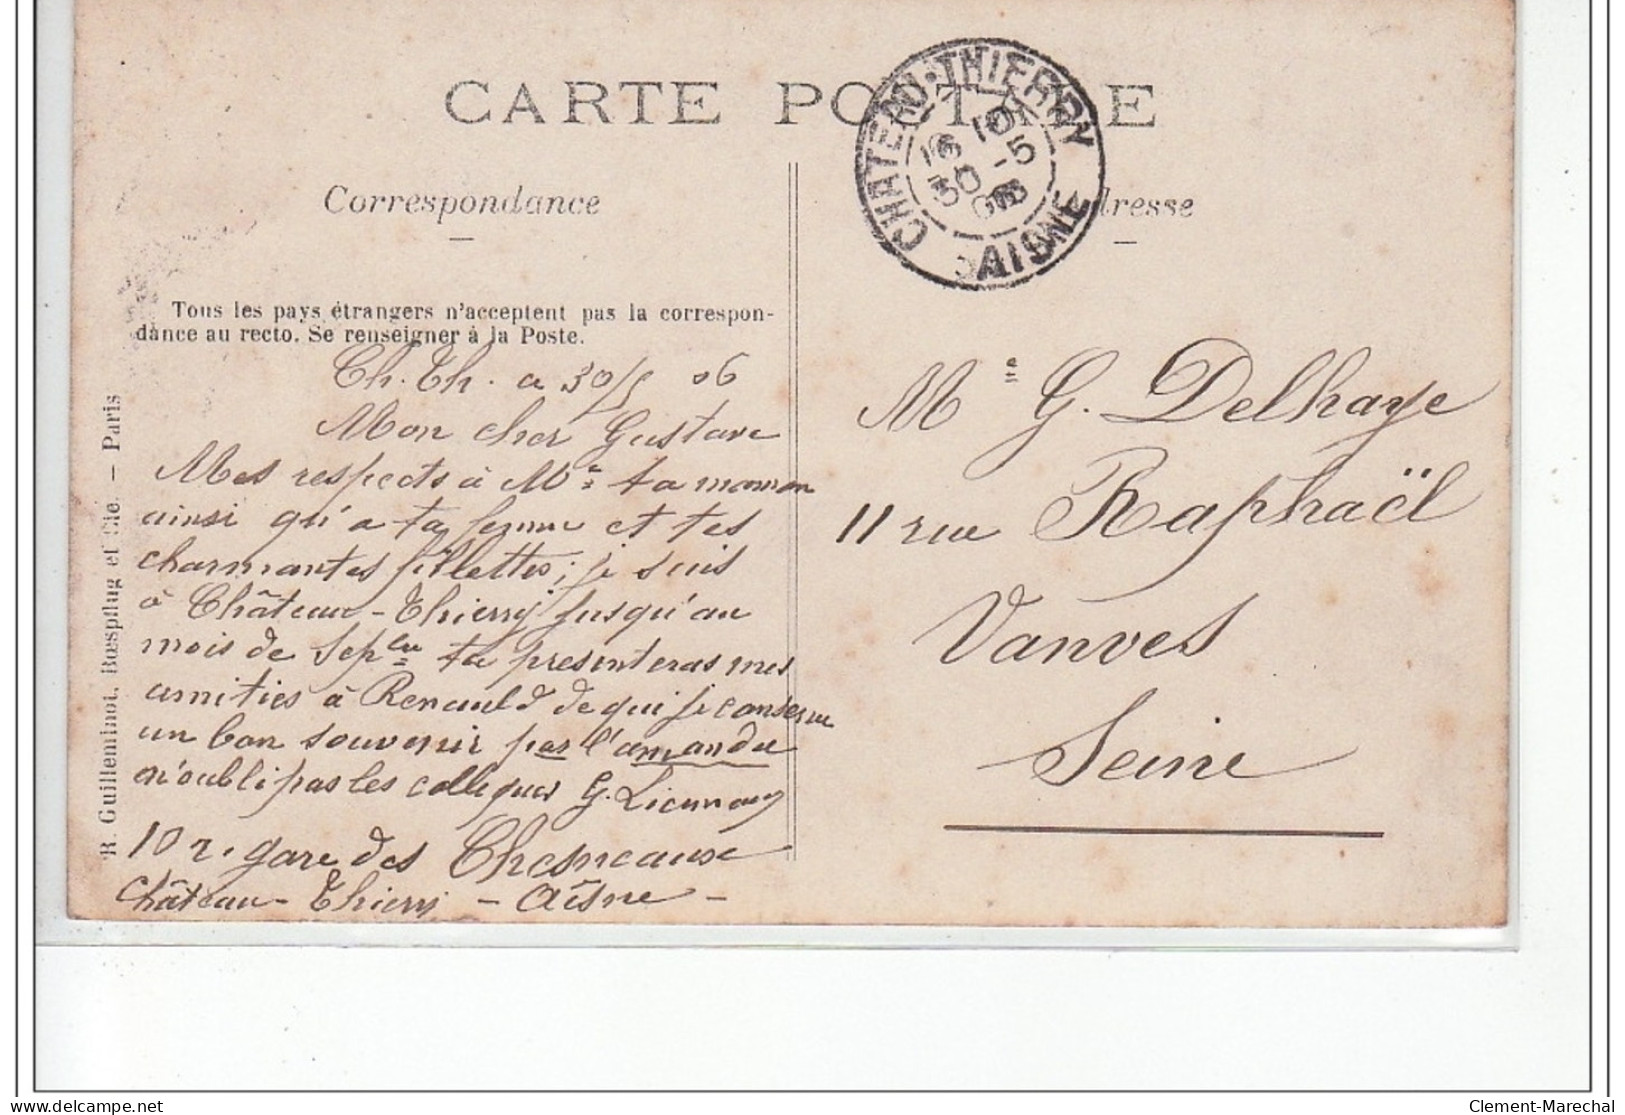 CARTE POSTALE
Correspondance
Adresse
CHATEAU-THIERRY
16 10
30 -5
06
AISNE
Tous les pays étrangers n'acceptent pas la correspon-
dance au recto. Se renseigner à la Poste.
R. Guilleminot, Bœspflug et Cie. — Paris
Ch. Th. a 30/5 06
Mon cher Gustave
Mes respects à Me ta maman
ainsi qu'a ta femme et tes
charmantes fillettes; je suis
à Château-Thierry jusqu'au
mois de Sepbre tu presenteras mes
amitiés à Renauld de qui je conserve
un bon souvenir par l'amandu
n'oubli pas les collegues G.
10 r. gare des Chesneaux
Château-Thierry - Aisne -
Me G. Delhaye
11 rue Raphaël
Vanves
Seine
Clement-Marechal